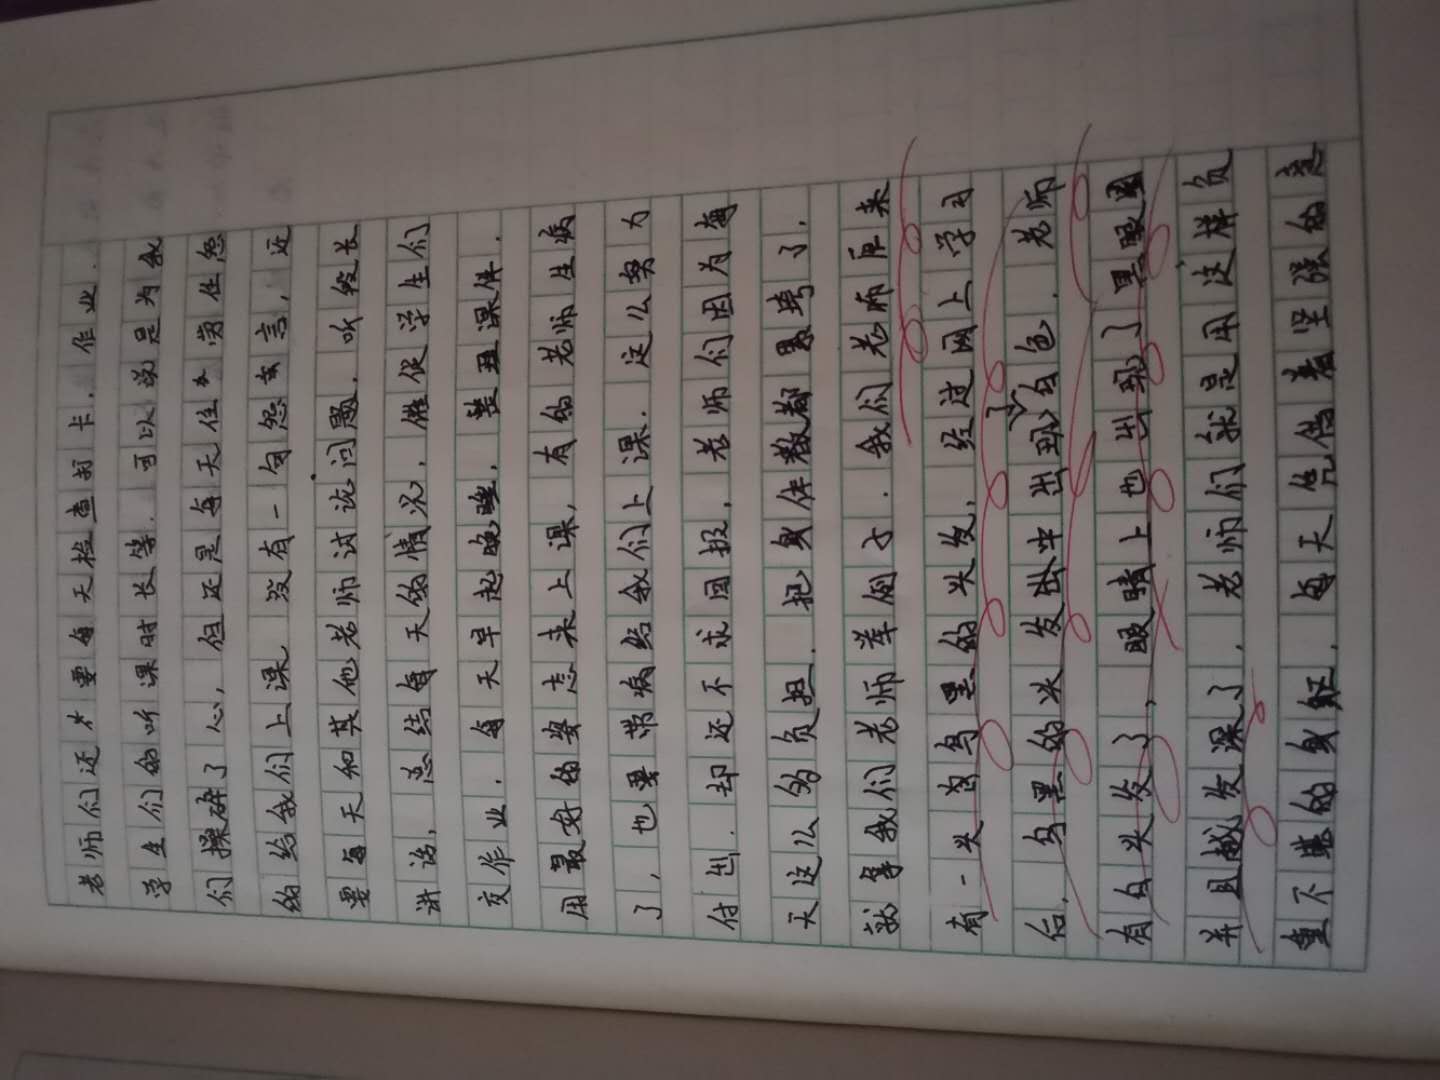 老师们还才要每天检查打卡，作业，
学生们的听课时长等．可以说是为我
们操碎了心，但还是每天任劳任怨
的给我们上课．没有一句怨言，还
要每天和其他老师试论问题．听校长
讲话，总结每天的情况，催促学生们
交作业．每天早起晚睡，整理课件．
用最好的姿态来上课，有的老师生病
了，也要带病给我们上课．这么努力
付出．却还不求回报，老师们因为每
天这么的负担．把身体都累垮了．
就拿我们老师举例子．我们老师原来
有一头乌黑的头发，经过网上学习
后，乌黑的头发中出现白色．老师
有白头发了，眼睛上也出现了黑眼圈
并且越发深了，老师们就是用这样负
重不堪的身躯，每天凭借着坚强的意